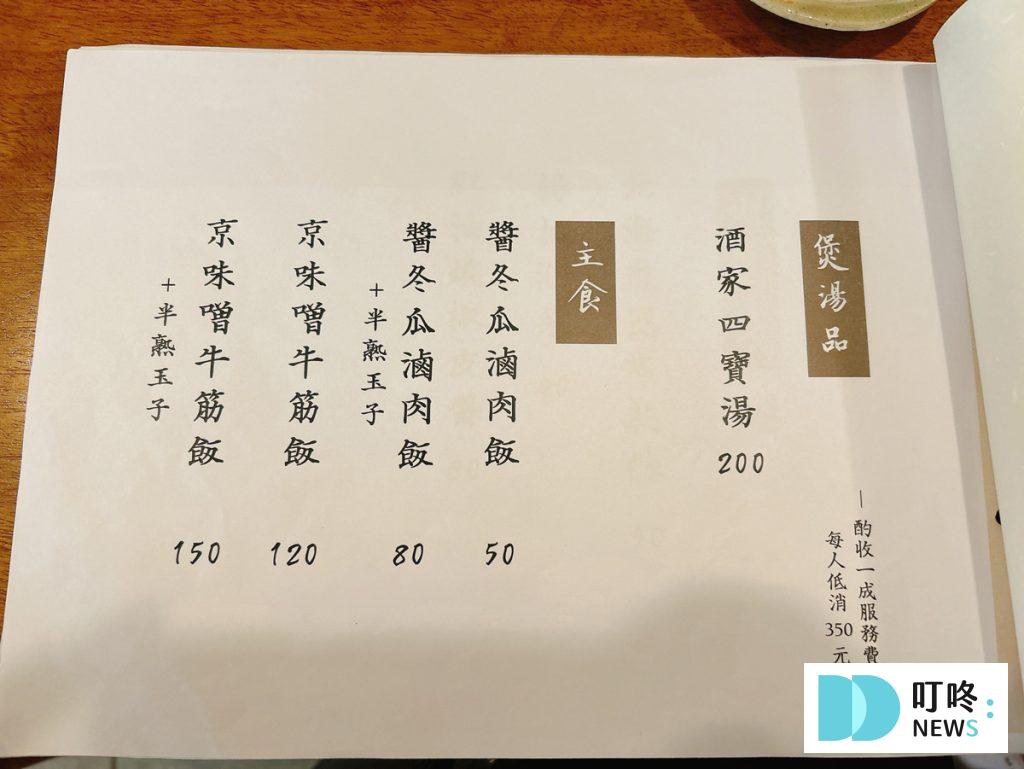 煲湯品
酒家四寶湯
200
主食
醬冬瓜滷肉飯
50
醬冬瓜滷肉飯
+半熟玉子
80
京味噌牛筋飯
120
京味噌牛筋飯
+半熟玉子
150
—酌收一成服務費
每人低消350元
叮咚:
NEWS